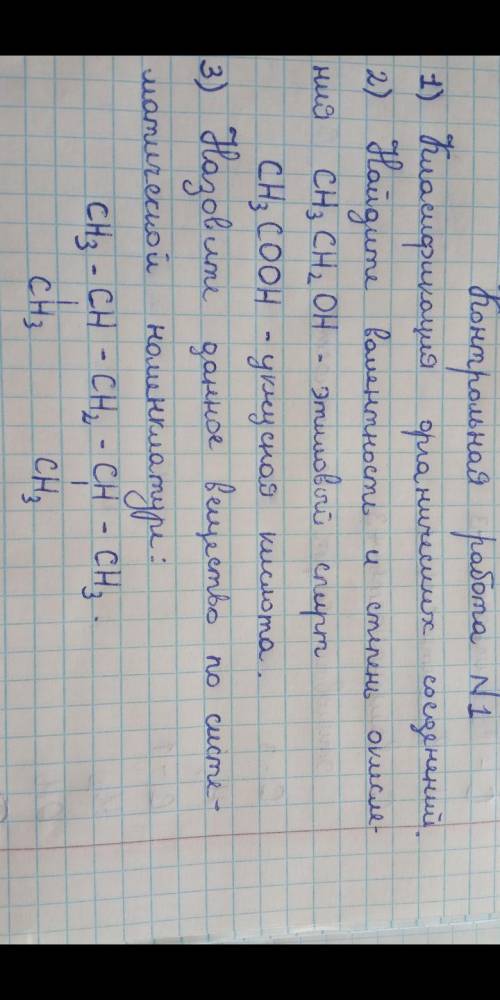 Контрольная работа N1
1) Класификация органических соединений.
2) Найдите валентность и степень окисле-
ния CH3CH2OH - этиловый спирт
CH3COOH - уксусная кислота.
3) Назовите данное вещество по систе-
матической номенклатуре:
CH3 - CH - CH2 - CH - CH3.
| |
CH3 CH3